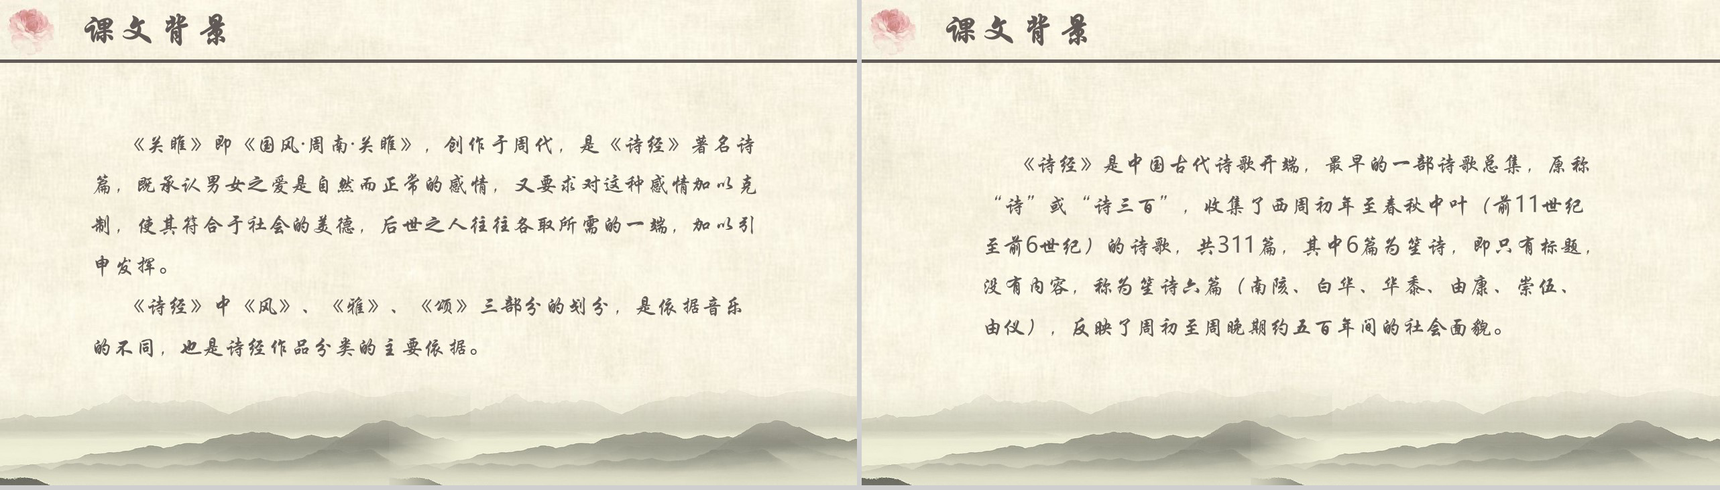 课文背景
《关雎》即《国风·周南·关雎》，创作于周代，是《诗经》著名诗
篇，既承认男女之爱是自然而正常的感情，又要求对这种感情加以克
制，使其符合于社会的美德，后世之人往往各取所需的一端，加以引
申发挥。
《诗经》中《风》、《雅》、《颂》三部分的划分，是依据音乐
的不同，也是诗经作品分类的主要依据。
课文背景
《诗经》是中国古代诗歌开端，最早的一部诗歌总集，原称
“诗”或“诗三百”，收集了西周初年至春秋中叶（前11世纪
至前6世纪）的诗歌，共311篇，其中6篇为笙诗，即只有标题，
没有内容，称为笙诗六篇（南陔、白华、华黍、由康、崇伍、
由仪），反映了周初至周晚期约五百年间的社会面貌。